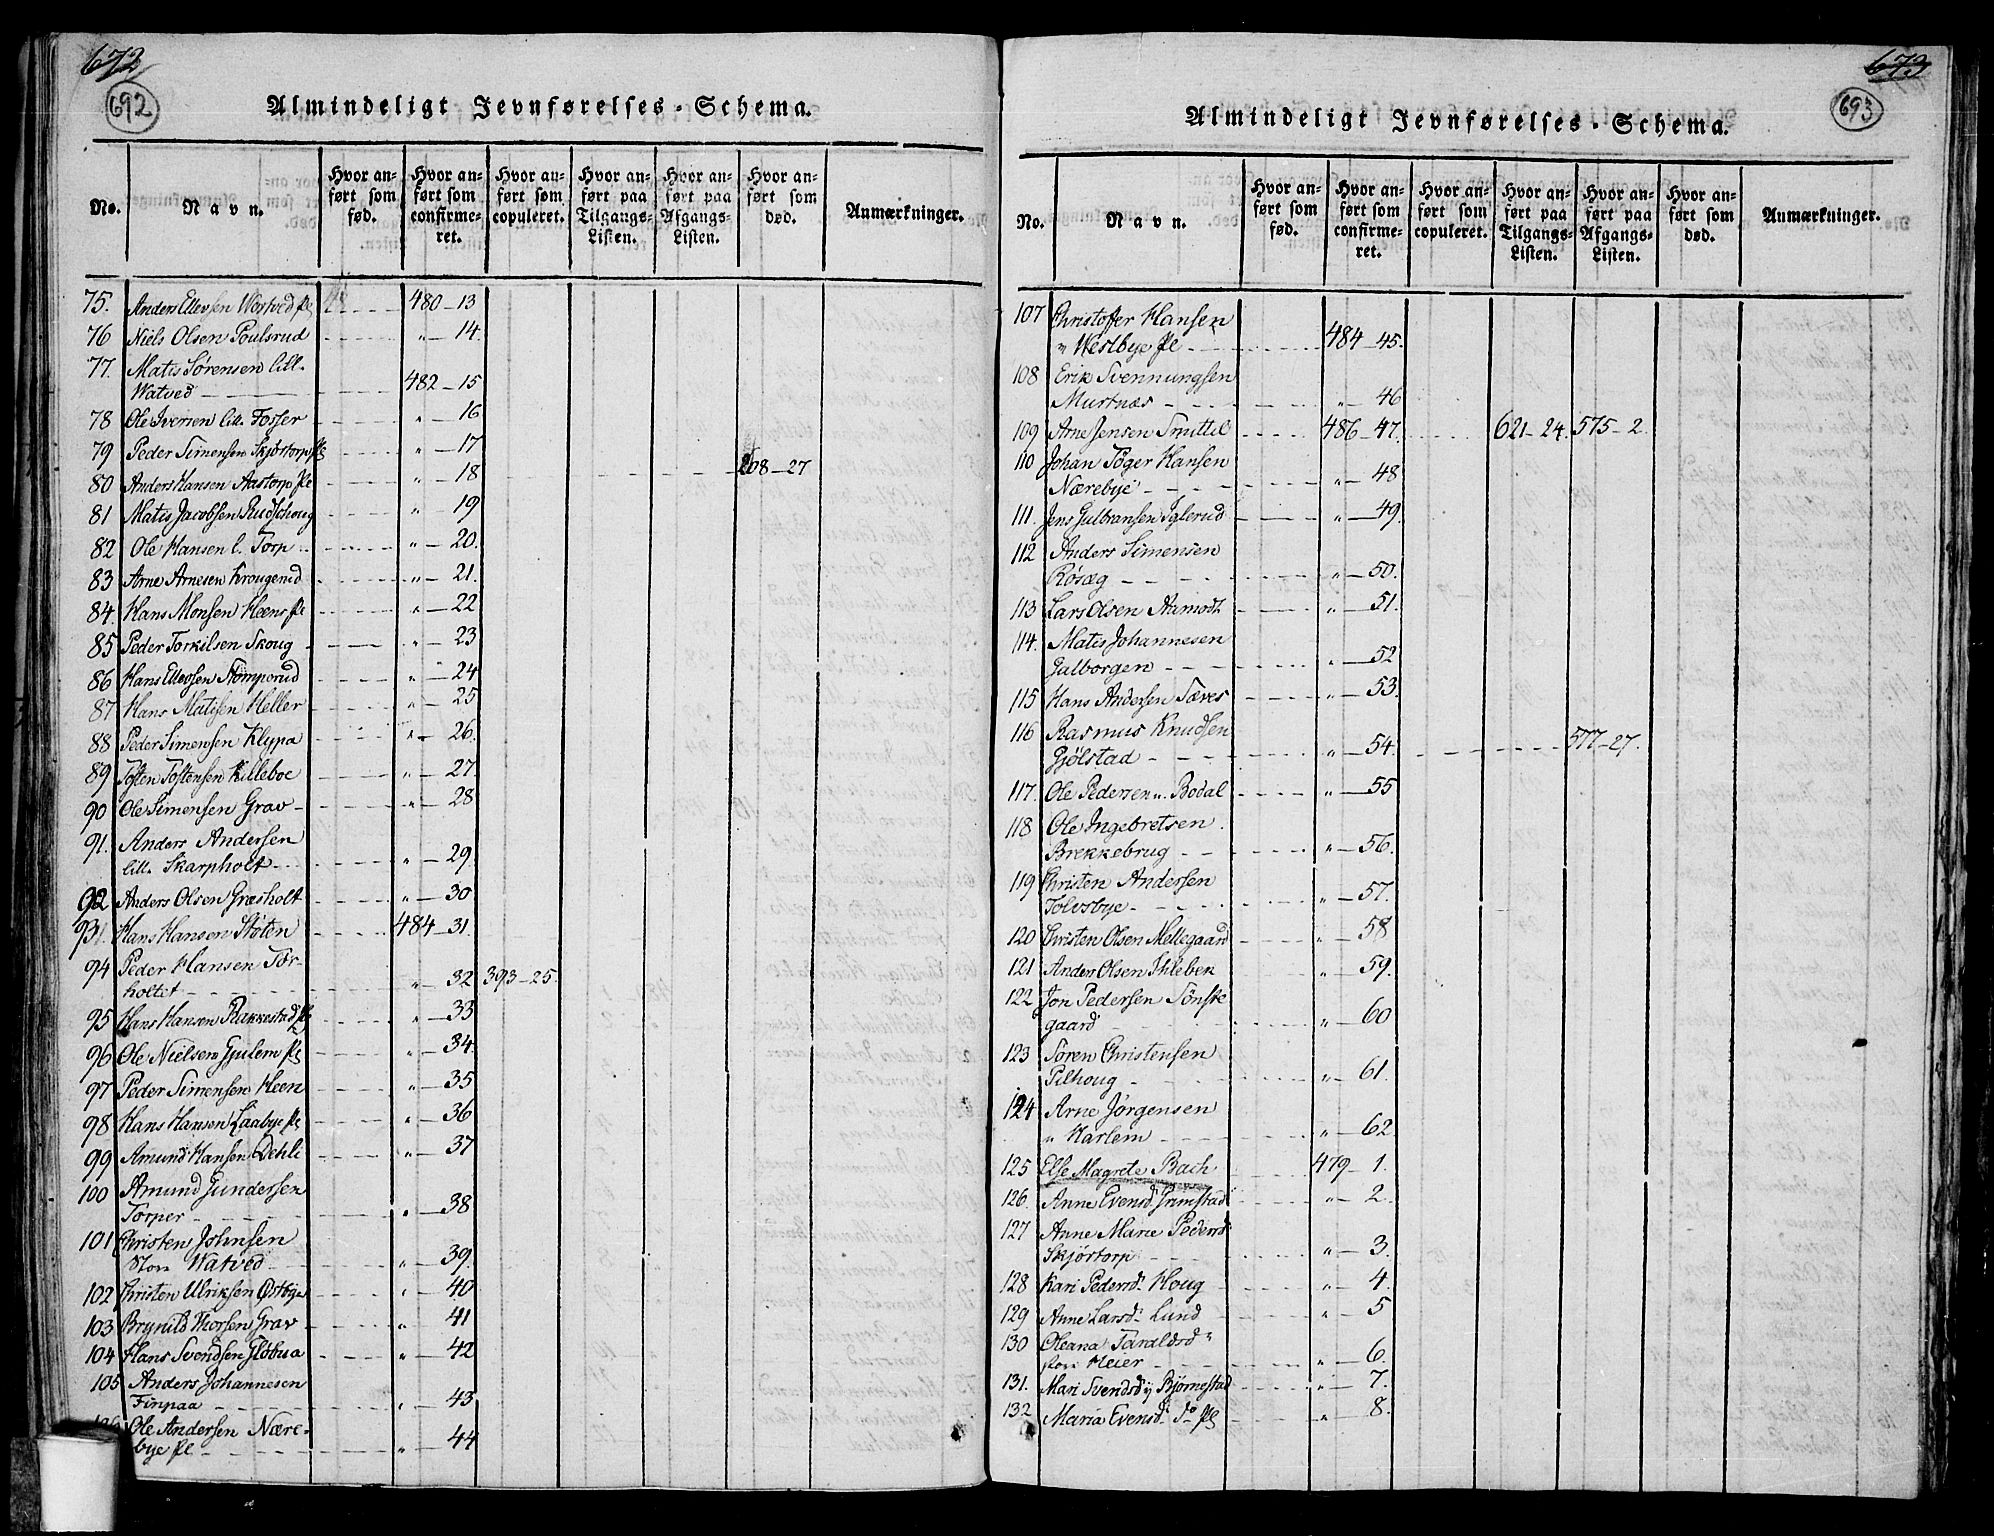 672
692
Almindeligt Jevnførelses-Schema.
No. Navn. Hvor anført som fød. Hvor anført som confirmeret. Hvor anført som copuleret. Hvor anført paa Tilgangs-Listen. Hvor anført paa Afgangs-Listen. Hvor anført som død. Anmærkninger.
75. Anders Ellevsen Wostved pl 480-13
76 Niels Olsen Poulsrud " - 14.
77. Matis Sørensen lill.
Watved 482-15
78 Ole Iversen lill. Fosser " - 16
79 Peder Simensen Skjøstorp pl " - 17
80 Anders Hansen Aastorp pl " - 18 268-27
81 Matis Jacobsen Rudshoug " - 19
82 Ole Hansen l. Torp " - 20.
83 Arne Arnesen Krougerud " - 21.
84. Hans Monsen Heens pl " - 22
85 Peder Torkilsen Skoug " - 23
86 Hans Ellevsen Stomperud " - 24
87 Hans Matisen Heller " - 25
88 Peder Simensen Klypa " - 26.
89 Tosten Tostensen Killeboe " - 27.
90 Ole Simensen Grav " - 28
91. Anders Andersen
lill. Skarpholt " - 29.
92 Anders Olsen Græsholt " - 30
93. Hans Hansen Støten 484-31.
94 Peder Hansen Tor-
holtet " - 32 393-25.
95 Hans Hansen Rakkestad pl " - 33
96 Ole Nielsen Gjulem pl " - 34.
97 Peder Simensen Heen " - 35
98 Hans Hansen Laabye pl " - 36
99 Amund Hansen Dehli " - 37
100 Amund Gundersen
Torper " - 38
101 Christen Johnsen
Stor Watved " - 39.
102 Christen Ulriksen Østbye " - 40
103 Brynild Thorsen Grav " - 41
104 Hans Svendsen Gløbua " - 42
105 Anders Johannesen
Finpaa " - 43
106 Ole Andersen Nære-
bye pl " - 44
673
693
Almindeligt Jevnførelses-Schema.
No. Navn. Hvor anført som fød. Hvor anført som confirmeret. Hvor anført som copuleret. Hvor anført paa Tilgangs-Listen. Hvor anført paa Afgangs-Listen. Hvor anført som død. Anmærkninger.
107 Christoffer Hansen
" Westbye pl 484-45.
108 Erik Svennungsen
Murtnæs " - 46
109 Arne Jensen Smittil 486-47. 621-24. 575-2.
110 Johan Tøger Hansen
Nærebye " - 48
111. Jens Gulbransen Iglerud " - 49.
112 Anders Simensen
Røsæg " - 50.
113 Lars Olsen Aamodt " - 51.
114. Matis Johannesen
Galborgen " - 52
115 Hans Andersen Sæves " - 53.
116 Rasmus Knudsen
Gjølstad " - 54. 577-27.
117. Ole Pedersen n. Bodal " - 55
118 Ole Ingebretsen
Brekkebrug " - 56.
119 Christen Andersen
Tolvsbye " - 57.
120 Christen Olsen Mellegaard " - 58
121 Anders Olsen Ihleber " - 59.
122 Jon Pedersen Tønske
gaard " - 60
123 Søren Christensen
Pilhoug " - 61.
124 Arne Jørgensen
" Harlem " - 62.
125 Else Magrete Bach 479-1.
126. Anne Evensd. Grimstad " - 2.
127 Anne Marie Pedersd.
Skjøstorp " - 3.
128 Kari Pedersd. Houg " - 4.
129 Anne Larsd. Lund " - 5
130 Oleana Taraldsd.
stor Heier " - 6.
131. Mari Svendsd. Bjørnestad " - 7.
132 Maria Evensd. do pl " - 8.